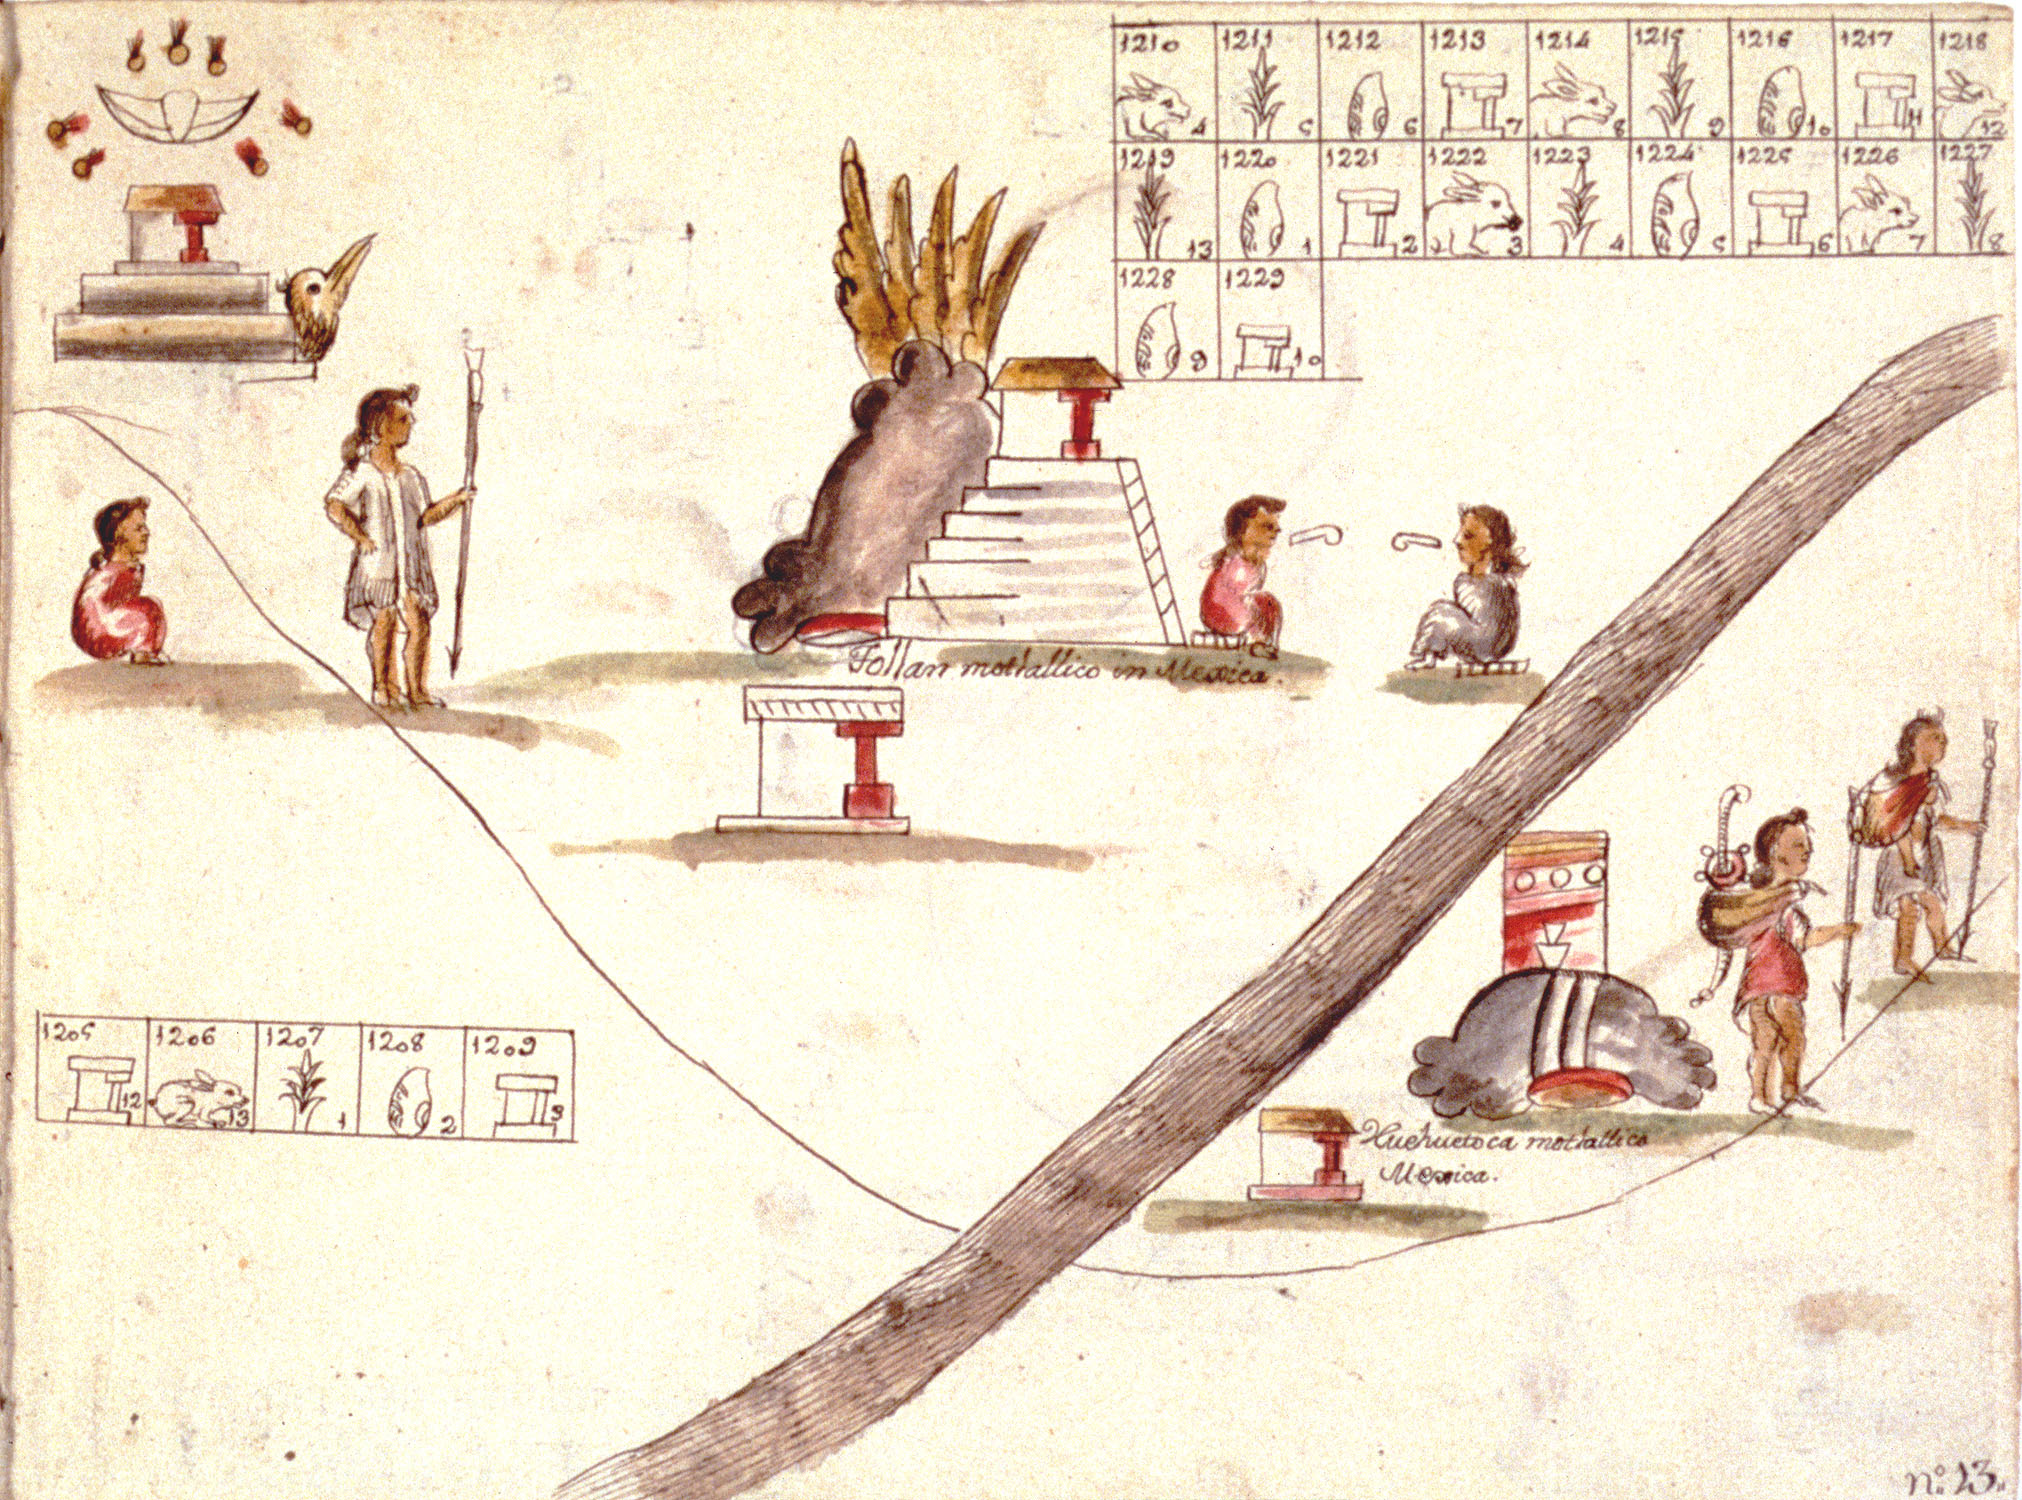 1210 1211 1212 1213 1214 1215 1216 1217 1218
4 5 6 7 8 9 10 11 12
1219 1220 1221 1222 1223 1224 1225 1226 1227
13 1 2 3 4 5 6 7 8
1228 1229
9 10
Tollan motlallico in Mexica.
1205 1206 1207 1208 1209
12 13 1 2 3
Huehuetoca motlallico
Mexica.
nº 23.